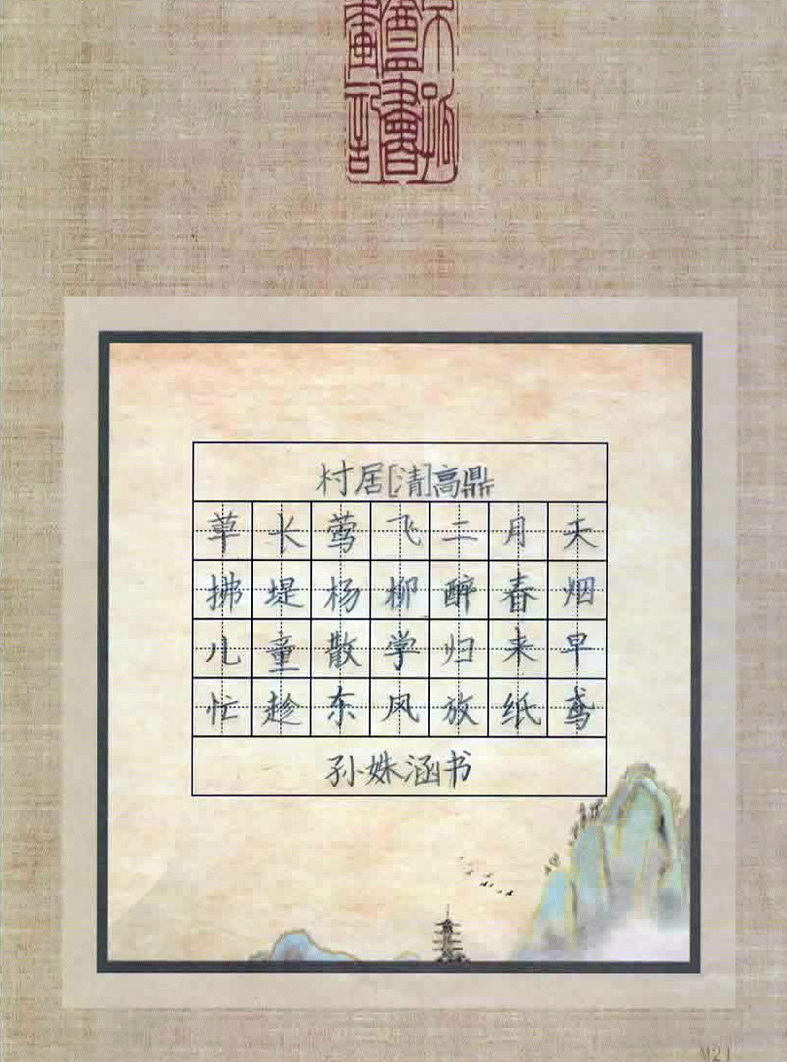 村居[清]高鼎
草长莺飞二月天
拂堤杨柳醉春烟
儿童散学归来早
忙趁东风放纸鸢
孙姝涵书